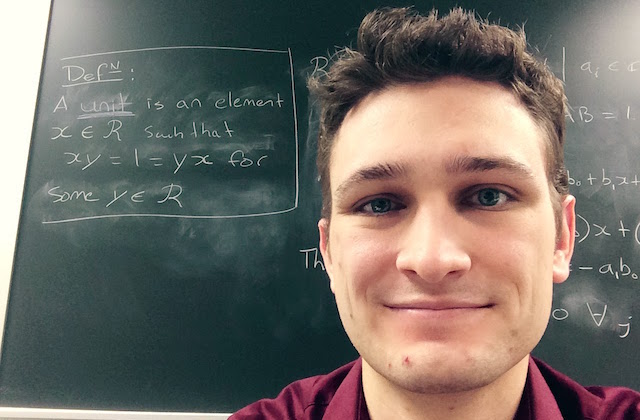 Defᴺ:
A unit is an element
x ∈ R such that
xy = 1 = yx for
some y ∈ R
R
| aᵢ ∈
AB = 1.
b₀ + b₁x +
)x + (
- a₁b₀
Th
0 ∀ j